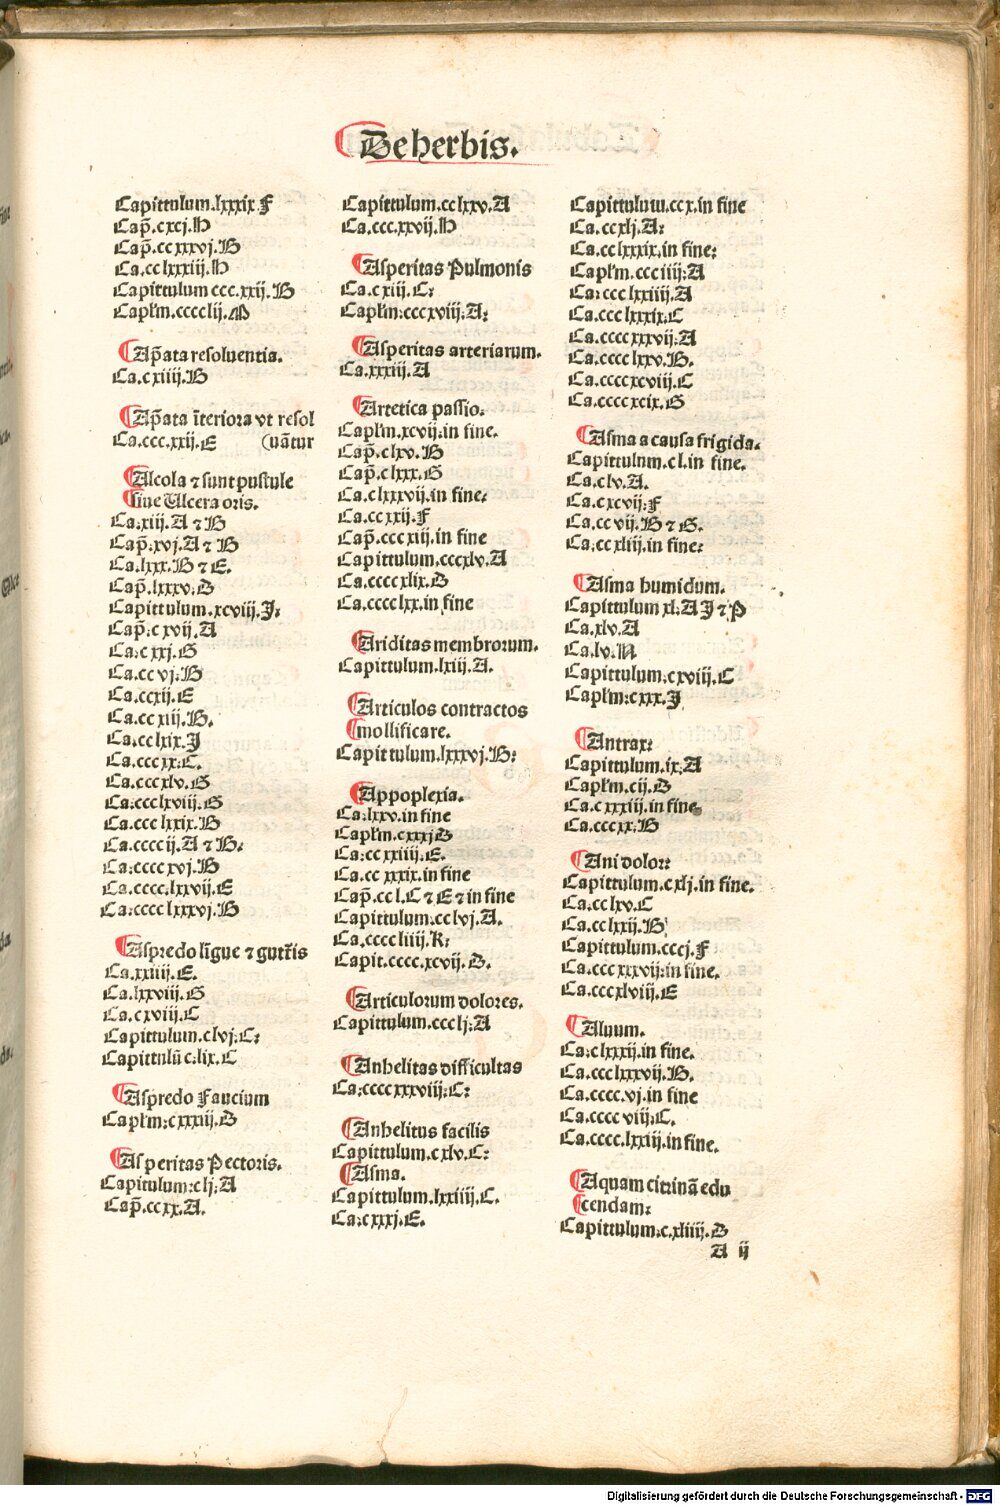 De herbis.
Capittulum.lxxxix F
Cap̃.cxcj.H
Cap̃.cc xxxvj.B
Ca.cc lxxxiij.H
Capittulum ccc.xxij.B
Capľm.cccclij.M
Ap̃ata resoluentia.
Ca.c xiiij.B
Ap̃ata īteriora vt resol
Ca.ccc.xxij.E (uãtur
Alcola ⁊ sunt pustule
siue Ulcera oris.
Ca.xiij.A ⁊ B
Cap̃.xvj.A ⁊ B
Ca.lxx.B ⁊ E.
Cap̃.lxxxv.D
Capittulum.xcviij.J.
Cap̃.c xvij.A
Ca.c xxj.G
Ca.cc vj.B
Ca.ccxij.E
Ca.cc xiij.B.
Ca.cc lxix.J
Ca.ccc xx.C.
Ca.ccc xlv.G
Ca.ccc lxviij.G
Ca.ccc lxxix.B
Ca.cccc ij.A ⁊ B.
Ca.cccc xvj.B
Ca.cccc.lxxvij.E
Ca.cccc lxxxvj.B
Aspredo līgue ⁊ gutťis
Ca.xxiiij.E.
Ca.lxxviij.G
Ca.c xviij.C
Capittulum.clvj.C:
Capittulũ c.lix.C
Aspredo Faucium
Capľm:cxxxiij.D
Asperitas Pectoris.
Capitulum:c lj.A
Cap̃.cc xx.A.
Capittulum.cc lxxv.A
Ca.ccc.xxvij.H
Asperitas Pulmonis
Ca.c xiij.C:
Capľm:ccc xviij.A:
Asperitas arteriarum.
Ca.xxxiij.A
Artetica passio.
Capľm.xcvij.in fine.
Cap̃.c lxv.B
Cap̃.c lxxx.G
Ca.c lxxxvij.in fine:
Ca.cc xxij.F
Cap̃.ccc xij.in fine
Capittulum.cccxlv.A
Ca.cccc xlix.D
Ca.cccc lxx.in fine
Ariditas membrorum.
Capittulum.lxiij.A.
Articulos contractos
mollificare.
Capittulum.lxxxvj.B:
Appoplexia.
Ca.lxxv.in fine
Capľm.cxxxj D
Ca:cc xxiiij.E.
Ca.cc xxxix.in fine
Cap̃.cc l.C ⁊ E ⁊ in fine
Capittulum:cc lvj.A.
Ca.cccc liiij.K:
Capit.cccc.xcvij.D.
Articulorum dolores.
Capittulum.ccc lj:A
Anhelitas difficultas
Ca:cccc xxxviij.C:
Anhelitus facilis
Capittulum.c xlv.C:
Asma.
Capittulum.lxxiiij.C.
Ca:c xxxj.E.
Capittulum.cc x.in fine
Ca.cc xlj.A:
Ca.cc lxxxix.in fine:
Capľm.ccc iiij:A
Ca:ccc lxxiiij.A
Ca.ccc lxxxix.C
Ca.cccc xxxvij:A
Ca.cccc lxxv.B.
Ca.cccc xcviij.C
Ca.cccc xcix.G
Asma a causa frigida.
Capittulum.c l.in fine.
Ca.c lv.A.
Ca.c xcvij:F
Ca.cc vij.B ⁊ G.
Ca:cc xliij.in fine:
Asma humidum.
Capittulum xl:A J ⁊ P
Ca.xlv.A
Ca.lv.N
Capittulum:c xviij.C
Capľm:c xxx.J
Antrax:
Capittulum.ix:A
Capľm.cij.D
Ca:c xxxiij.in fine
Ca.ccc xx:B
Ani dolor:
Capittulum.c xlj.in fine.
Ca.cc lxv.C
Ca.cc lxxij.B
Capittulum.cccj.F
Ca.ccc xxxvij:in fine.
Ca.cccxlviij.E
Aluum.
Ca:c lxxxij.in fine.
Ca.ccc lxxxvij.B.
Ca.cccc.vj.in fine
Ca.cccc viij.C.
Ca.cccc.lxxiij.in fine.
Aquam citrinã edu
cendam:
Capittulum:c.xliiij.D
A ij
Digitalisierung gefördert durch die Deutsche Forschungsgemeinschaft - DFG